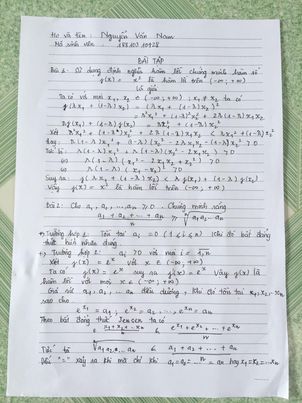 Họ và tên : Nguyễn Văn Nam
Mã sinh viên :
BÀI TẬP
Bài 1: Sử dụng định nghĩa hàm lồi chứng minh hàm số
f(x) = x² là hàm lồi trên (-∞; +∞)
Lời giải
Ta có với mọi x₁, x₂ ∈ (-∞; +∞) ; x₁ ≠ x₂ ta có
f(λx₁ + (1-λ)x₂) = (λx₁ + (1-λ)x₂)²
= λ²x₁² + (1-λ)²x₂² + 2λ(1-λ)x₁x₂
λf(x₁) + (1-λ)f(x₂) = λx₁² + (1-λ)x₂²
Xét λ²x₁² + (1-λ)²x₂² + 2λ(1-λ)x₁x₂ < λx₁² + (1-λ)x₂²
λ(1-λ)(x₁² - 2x₁x₂ + x₂²) > 0
⇔ λ(1-λ)(x₁ - x₂)² > 0
Suy ra: f(λx₁ + (1-λ)x₂) < λf(x₁) + (1-λ)f(x₂)
Vậy f(x) = x² là hàm lồi trên (-∞; +∞)
Bài 2: Cho a₁, a₂, ..., aₙ ≥ 0. Chứng minh rằng
(a₁ + a₂ + ... + aₙ)/n ≥ ⁿ√(a₁a₂...aₙ)
+) Trường hợp 1: Tồn tại aᵢ = 0 (1 ≤ i ≤ n) Khi đó bất đẳng
thức hiển nhiên đúng.
+) Trường hợp 2: aᵢ > 0 với mọi i = 1,n
Xét f(x) = eˣ với x ∈ (-∞; +∞)
Ta có f''(x) = eˣ suy ra f(x) = eˣ Vậy f(x) là
hàm lồi với mọi x ∈ (-∞; +∞)
Giả sử a₁, a₂, ..., aₙ đều dương, khi đó tồn tại x₁, x₂, ... xₙ
sao cho
e^x₁ = a₁ ; e^x₂ = a₂ ; ... ; e^xₙ = aₙ
Theo bất đẳng thức Jensen ta có
e^((x₁+x₂+...+xₙ)/n) ≤ (e^x₁ + e^x₂ + ... + e^xₙ)/n
ⁿ√(a₁a₂...aₙ) ≤ (a₁ + a₂ + ... + aₙ)/n
Dấu "=" xảy ra khi và chỉ khi a₁ = a₂ = ... = aₙ hay x₁ = x₂ = ... xₙ